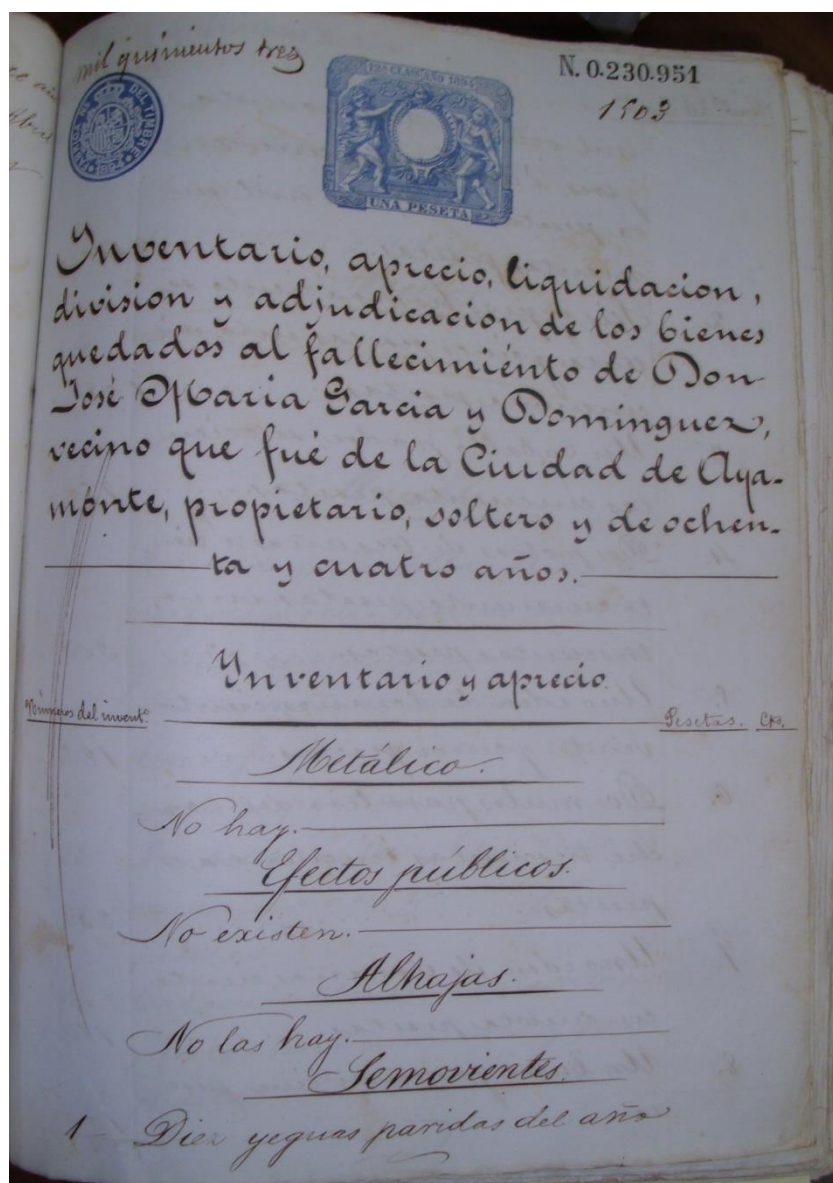 mil quinientos tres
N. 0.230.951
1503
12ª CLASE AÑO 1894
DEL TIMBRE
UNA PESETA
Inventario, aprecio, liquidacion,
division y adjudicacion de los bienes
quedados al fallecimiento de Don
José Maria Garcia y Dominguez,
vecino que fué de la Ciudad de Aya-
monte, propietario, soltero y de ochen-
ta y cuatro años.
Inventario y aprecio
Números del invent.º
Pesetas. Cts.
Metálico.
No hay.
Efectos públicos.
No existen.
Alhajas.
No las hay.
Semovientes.
1 Diez yeguas paridas del año